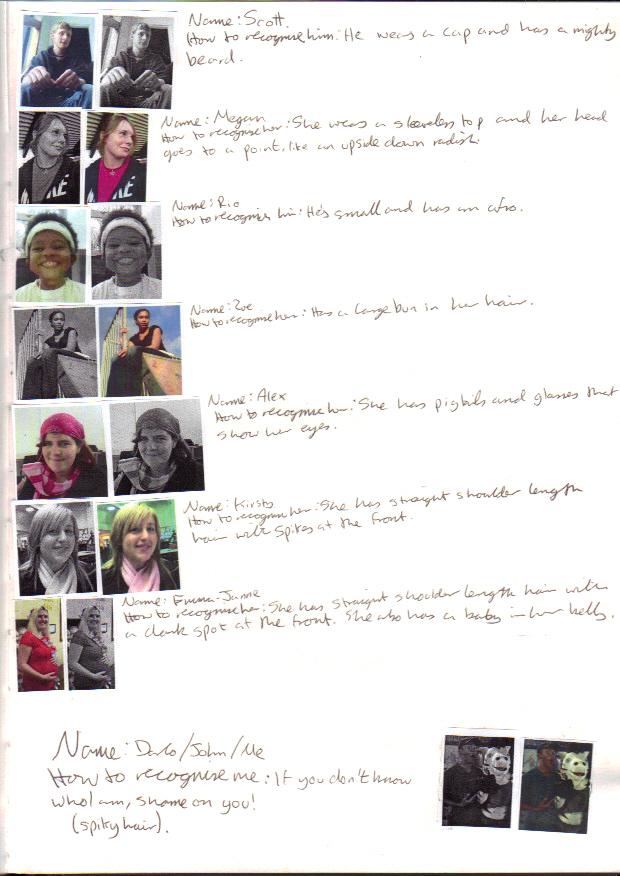 Name: Scott.
How to recognise him: He wears a cap and has a mighty
beard.
Name: Megan
How to recognise her: She wears a sleeveless top and her head
goes to a point, like an upside down radish.
Name: Rio
How to recognise him: He's small and has an afro.
Name: Zoe
How to recognise her: Has a large bun in her hair.
Name: Alex
How to recognise her: She has pigtails and glasses that
show her eyes.
Name: Kirsty
How to recognise her: She has straight shoulder length
hair with spikes at the front.
Name: Emma-Jayne
How to recognise her: She has straight shoulder length hair with
a dark spot at the front. She also has a baby in her belly.
Name: Davo/John/Me
How to recognise me: If you don't know
who I am, shame on you!
(spiky hair).